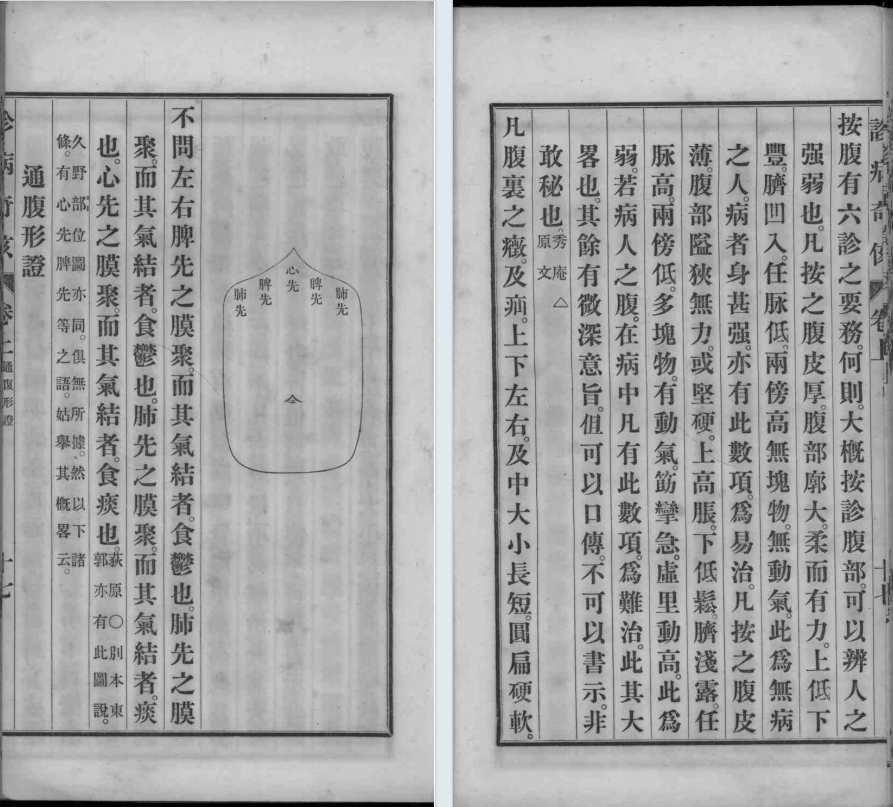 肺先
脾先
心先
脾先
肺先
不問左右脾先之膜聚。而其氣結者。食鬱也。肺先之膜
聚。而其氣結者。食鬱也。肺先之膜聚。而其氣結者。痰
也。心先之膜聚。而其氣結者。食痰也。荻原〇別本東
郭亦有此圖說。
久野部位圖亦同。俱無所據。然以下諸
條。有心先脾先等之語。姑舉其概畧云。
通腹形證
診病奇侅 卷上 通腹形證 十七
診病奇侅 卷上
按腹有六診之要務。何則。大概按診腹部。可以辨人之
强弱也。凡按之腹皮厚。腹部廓大。柔而有力。上低下
豐。臍凹入。任脉低。兩傍高。無塊物。無動氣。此爲無病
之人。病者身甚强。亦有此數項。爲易治。凡按之腹皮
薄。腹部隘狹無力。或堅硬。上高脹。下低鬆。臍淺露。任
脉高。兩傍低。多塊物。有動氣。筋攣急。虛里動高。此爲
弱。若病人之腹。在病中凡有此數項。爲難治。此其大
畧也。其餘有微深意旨。但可以口傳。不可以書示。非
敢秘也。秀庵
原文 △
凡腹裏之癥。及疝。上下左右。及中大小長短。圓扁硬軟。